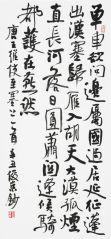 單車欲問邊屬國過居延征蓬
出漢塞歸雁入胡天大漠孤煙
直長河落日圓蕭關逢候騎
都護在燕然
唐王維使至塞上一首